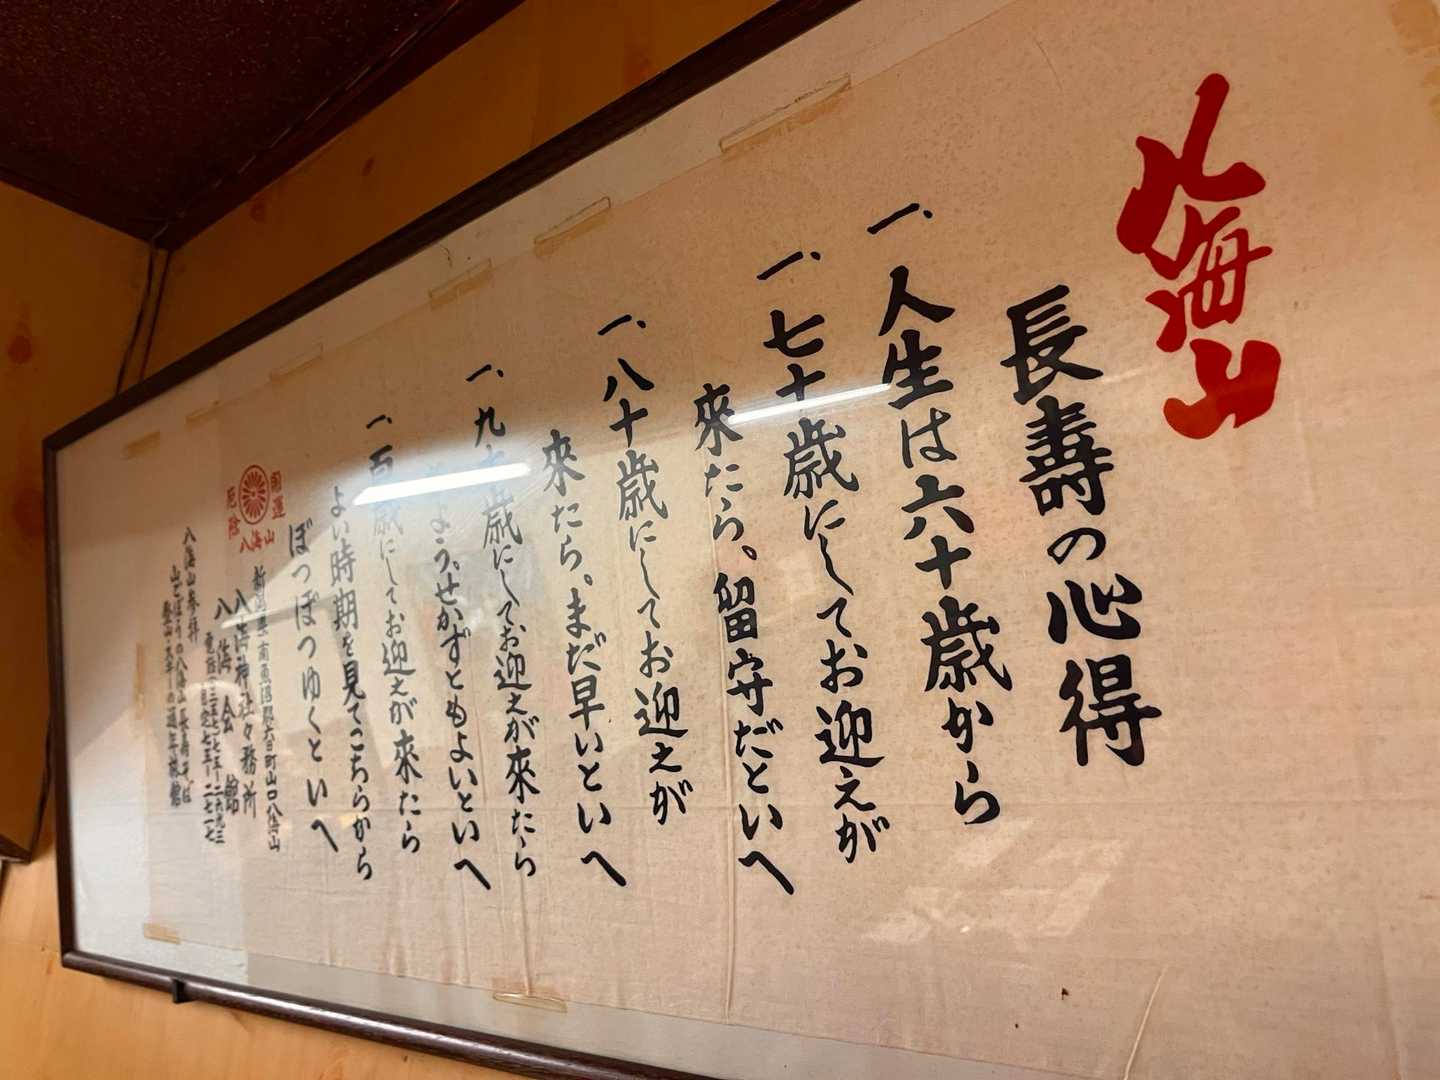 八海山
長寿の心得
一、人生は六十歳から
一、七十歳にしてお迎えが
來たら。留守だといへ
一、八十歳にしてお迎えが
來たら。まだ早いといへ
一、九十歳にしてお迎えが來たら
よう。せかずともよいといへ
一、百歳にしてお迎えが來たら
よい時期を見てこちらから
ぼつぼつゆくといへ
開運
厄除
八海山
新潟県南魚沼郡六日町山口八海山
八海神社々務所
八海会館
八海山参拝
山でほりの八海山長寿そば